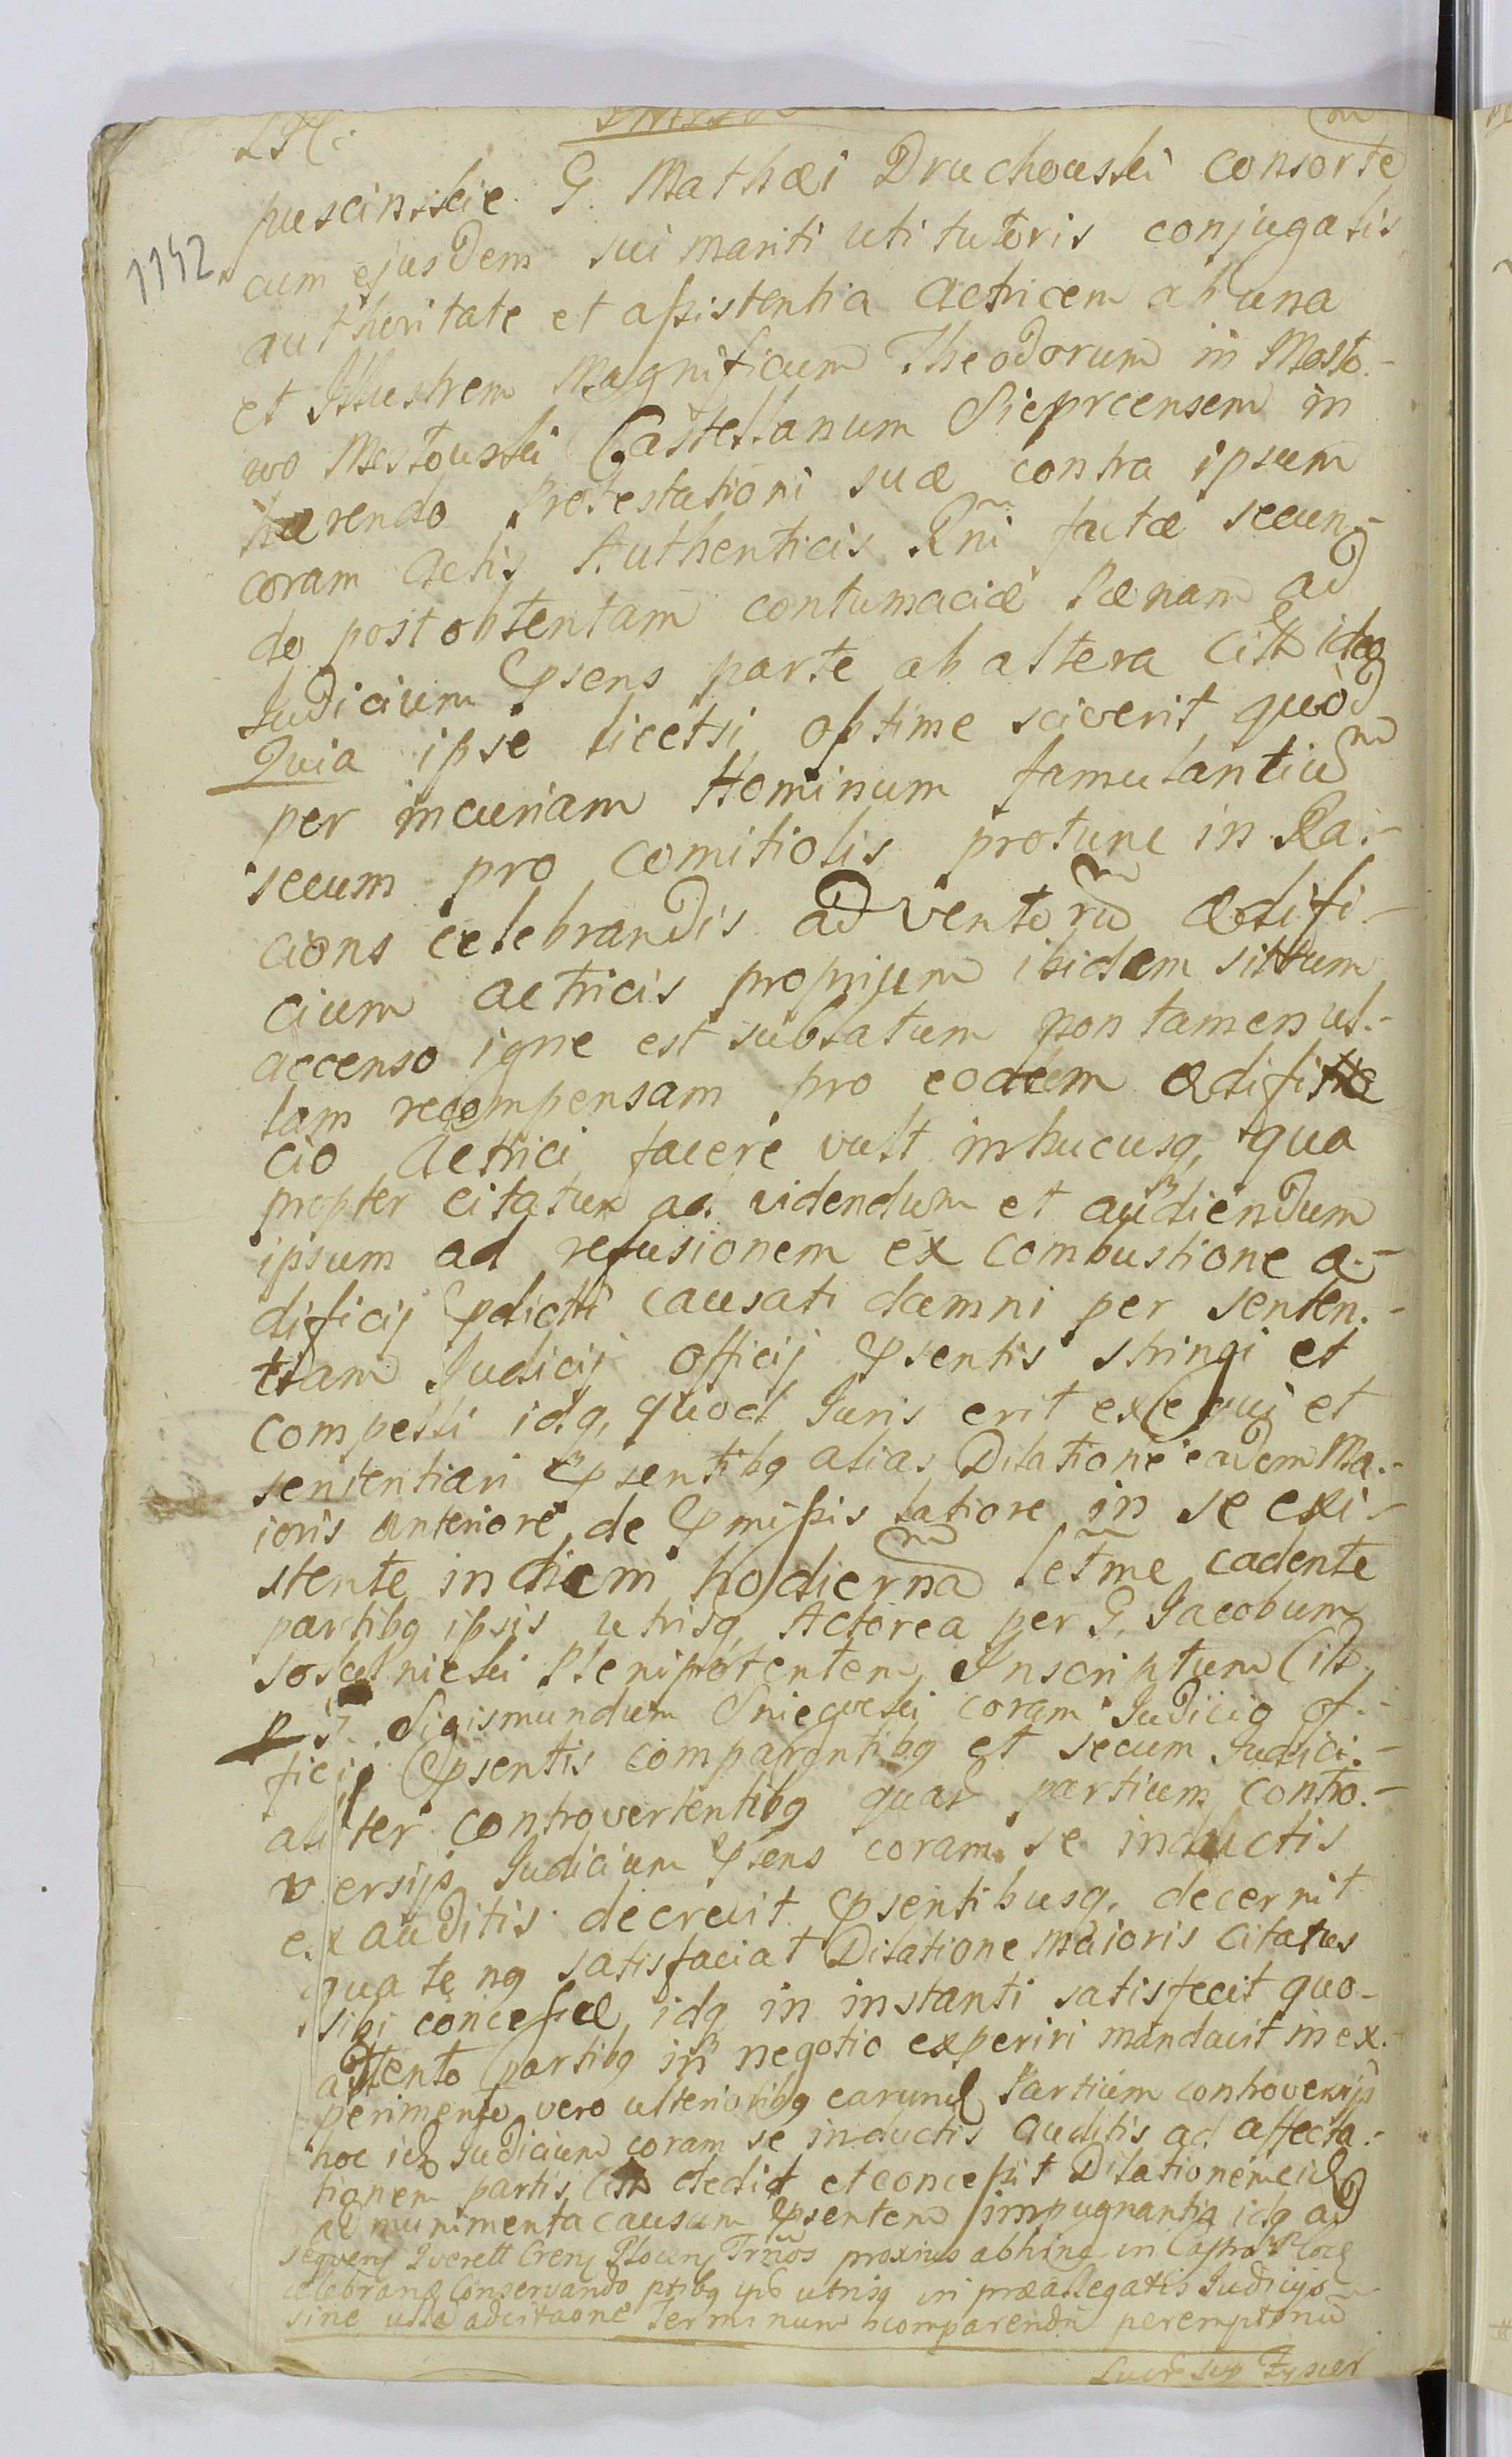 1142
puscinskie G. Mathæi Druchowski consorte
cum ejusdem sui mariti uti tutoris conjugalis
autheritate et assistentia Actricem ab una
et Illustrem Magnificum Theodorum in Mosto-
wo Mostowski Castellanum Sieprcensem in
hærendo Protestationi suæ contra ipsum
coram Actis Authenticis Rñi factæ secun-
do post obtentam contumaciæ Pænam ad
Judicium Psens parte ab altera Citt ideo
Quia ipse licetsi optime sciverit quòd
per incuriam Hominum famulantium
secum pro comitiolis protunc in Ra-
cions celebrandis adventorum ædifi-
cium actricis proprium ibidem sittum
accenso igne est sublatum non tamen ul-
lam recompensam pro eodem ædifi
cio Actrici facere vult inhucusq, qua
propter citatur ad videndum et audiendum
ipsum ad refusionem ex combustione æ-
dificij Pdicti causati damni per senten-
tiam Judicij Officij Psentis stringi et
compelli idq, quod Juris erit exequi et
sententiari Psentibg alias Dilatione eadem Ma-
ioris anteriore de Pmissis latiore in se exi-
stente in diem hodiernam letme cadente
partibg ipsis utrisq, Actorea per G. Jacobum
Sokolnicki Plenipotentem Inscriptum Citt
p G. Sigismundum Sniegucki coram Judicio of-
ficij Psentis comparentibg et secum Judici-
aliter controvertentibg quar partium contro-
versijs Judicium Psens coram se inductis
exauditis decrevit Psentibusq, decernit
quatenq satisfaciat Dilatione Maioris Citatus
sibi concessæ, idq in instanti satisfecit quo-
attento partibg in negotio experiri mandavit in ex-
perimento vero ulteriotibg earund Partium controversijs
hoc id Judicium coram se inductis auditis ad affecta-
tionem partis Citt dedit et concessit Dilationem eid
ad munimenta causam Psentem impugnantia idq ad
sequens Querell Crens Plocens Trños proxius abhinc in Castro Ploc
celebrand Conservando ptibg ipis utrisq in præallegatis Judicijs
sine ulla adcitaone Terminum comparendi peremptorium